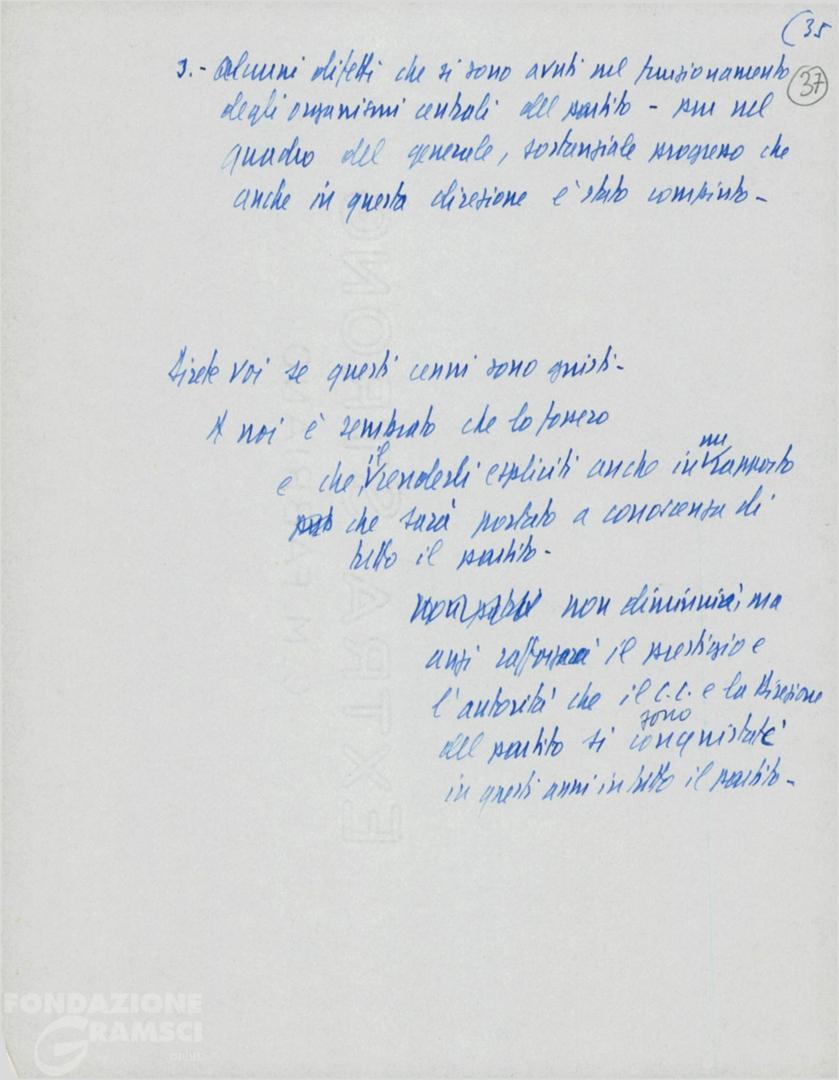 (35
37
3.- Alcuni difetti che si sono avuti nel funzionamento
degli organismi centrali del partito - pur nel
quadro del generale, sostanziale progresso che
anche in questa direzione è stato compiuto -
Direte voi se questi cenni sono giusti -
A noi è sembrato che lo fossero
e che il renderli espliciti anche in un rapporto
che sarà portato a conoscenza di
tutto il partito -
non diminuirà, ma
anzi rafforzerà il prestigio e
l'autorità che il C.C. e la Direzione
del partito si sono conquistate
in questi anni in tutto il partito -
FONDAZIONE
GRAMSCI
onlus